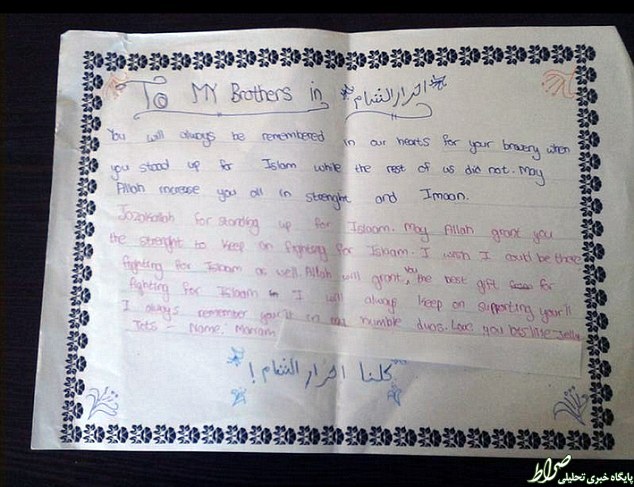 To MY Brothers in احرار الشام
You will always be remembered in our hearts for your bravery when
you stood up for Islam while the rest of us did not. May
Allah increase you all in strenght and Imaan.
Jazakallah for standing up for Islaam. May Allah grant you
the strenght to keep on fighting for Islaam. I wish I could be there
fighting for Islaam as well. Allah will grant you the best gift for
fighting for Islaam I will always keep on supporting you'll
I always remember you'll in humble duas. Love you
lots - Name: Mariam
كلنا احرار الشام !
صراط
پایگاه خبری تحلیلی